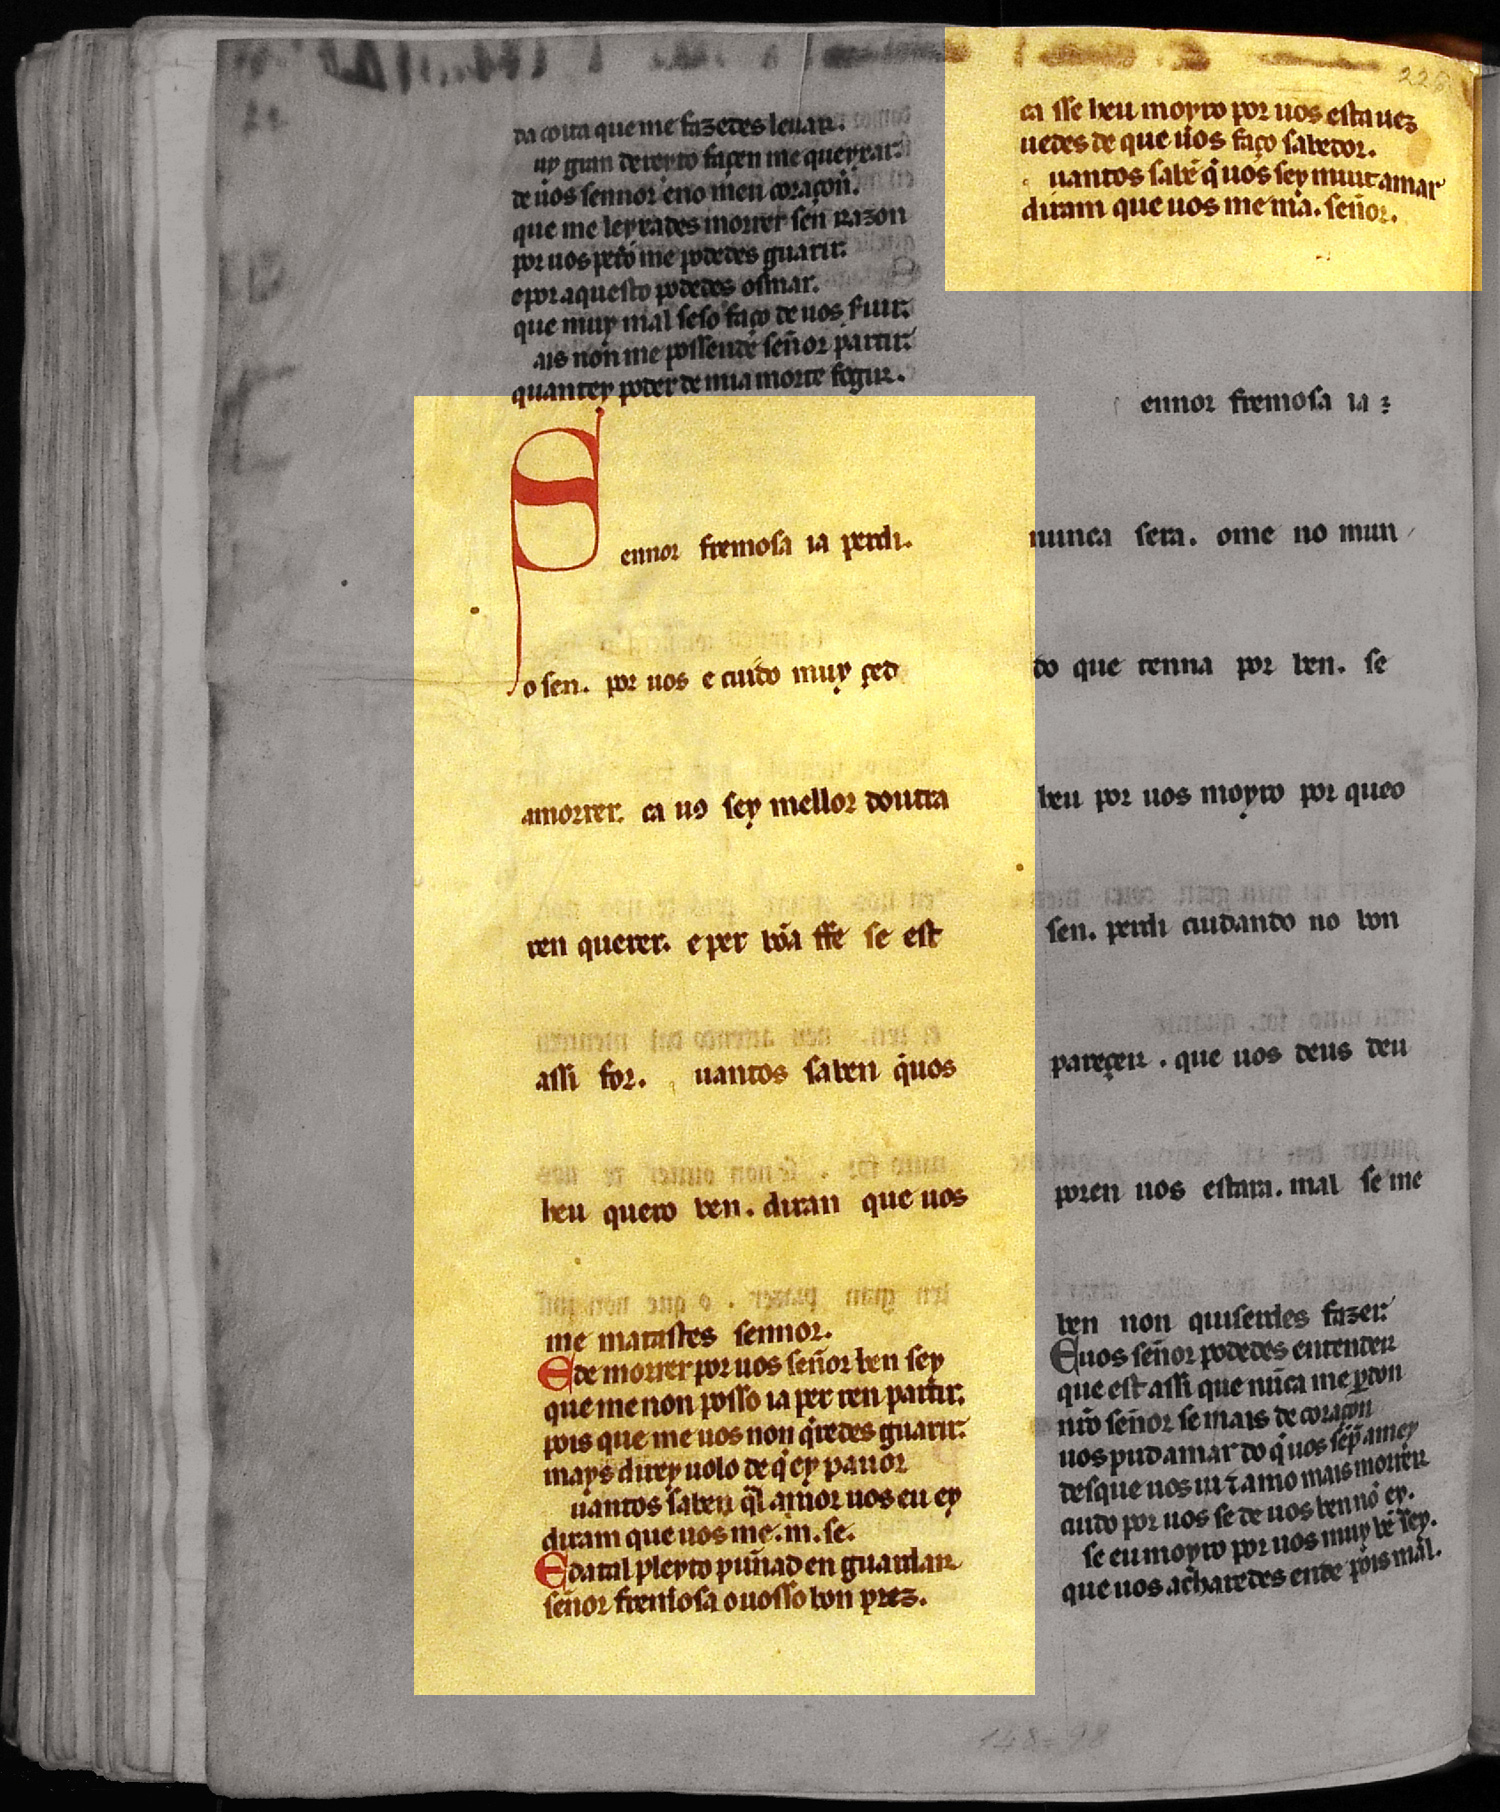 da coita que me fazedes leuar.
uy gran dereyto façen me queyxar.
de uos sennor eno meu coraçon.
que me leyxades morrer sen razon
por uos pero me podedes guarir.
epor aquesto podedes osmar.
que muy mal seso faço de uos suir.
ais non me possendẽ señor partir.
quantey poder de mia morte fogir.
Sennor fremosa ia perdi.
o sen. por uos e cuido muy çed
amorrer. ca uꝯ sey mellor doutra
ren querer. e per bõa ffe se est
assi for. uantos saben q̇uos
beu quero ben. diran que uos
me matastes sennor.
E de morrer por uos señor ben sey
que me non posso ia per ren partir.
pois que me uos non q̇redes guarir.
mays direy uolo de q̇ ey pauor
uantos saben q̇l amor uos eu ey
diram que uos me.m.se.
E datal pleyto puñad en guardar
señor fremosa o uosso bon prez.
ca sse beu moyro por uos esta uez
uedes de que uos faço sabedor.
uantos sabẽ q̇ uos sey muit amar
diram que uos me ma. señor.
ennor fremosa ia :
nunca sera. ome no mun
do que tenna por ben. se
beu por uos moyro por queo
sen. perdi cuidando no bon
pareçer. que uos deus deu
poren uos estara. mal se me
ben non quiserdes fazer.
E uos señor podedes entender
que est assi que nũca me ꝑdon
nr̃o señor se mais de coraçon
uos pud amar do q̇ uos sẽp̃ amey
desque uos ui ⁊ amo mais morrer
cuido por uos se de uos ben nõ ey.
se eu moyro por uos muy bẽ sey.
que uos acharedes ende pois mal.